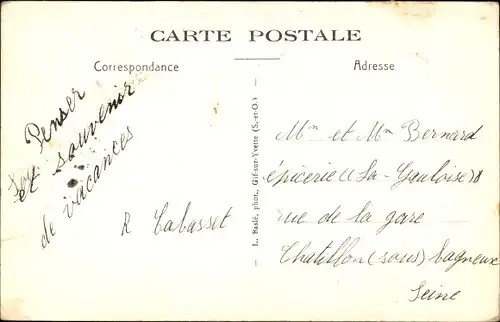 CARTE POSTALE
Correspondance
Adresse
Penser
et souvenir
de vacances
R Cabasset
L. Baslé, phot., Gif-sur-Yvette (S.-et-O.)
Mm et Mm Bernard
épicerie (La-Gauloise)
rue de la gare
Chatillon (sous) bagneux
Seine